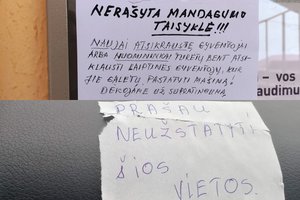 NERAŠYTA MANDAGUMO
TAISYKLĖ!!!
NAUJAI ATSIKRAUSTĘ GYVENTOJAI
ARBA NUOMININKAI TURĖTŲ BENT ATSI-
KLAUSTI LAIPTINĖS GYVENTOJŲ, KUR
JIE GALĖTŲ PASTATYTI MAŠINĄ!
DĖKOJAME UŽ SUPRATINGUMĄ!
– vos
audimu
PRAŠAU
NEUŽSTATYTI
ŠIOS
VIETOS.